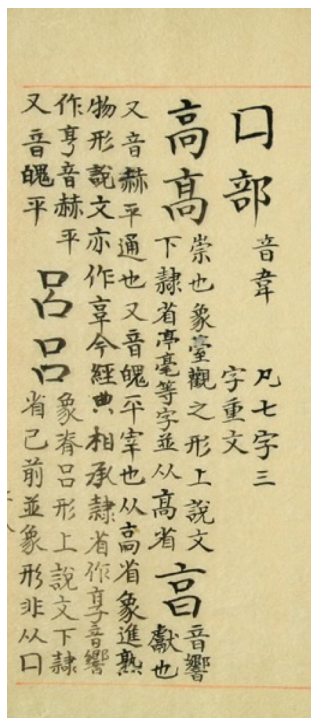 口部 音韋 凡七字三
字重文
髙高 崇也象臺觀之形上說文
下隷省亭毫等字並从髙省 亯 音響
獻也
又音赫平通也又音魄平宰也从髙省象進熟
物形說文亦作今經典相承隷省作享音響
作亨音赫平
又音魄平 呂吕 象脊呂形上說文下隷
省已前並象形非从口